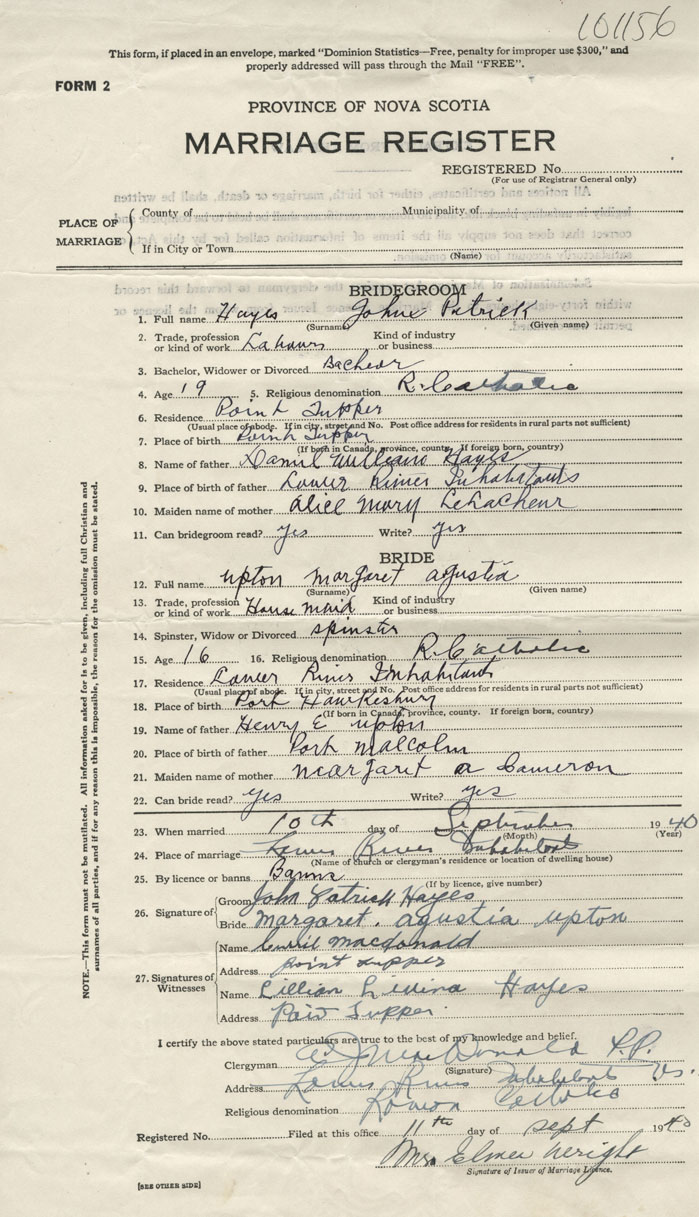 101156
This form, if placed in an envelope, marked "Dominion Statistics—Free, penalty for improper use $300," and
properly addressed will pass through the Mail "FREE".
FORM 2
PROVINCE OF NOVA SCOTIA
MARRIAGE REGISTER
REGISTERED No.
(For use of Registrar General only)
PLACE OF MARRIAGE
County of Municipality of
If in City or Town
(Name)
BRIDEGROOM
1. Full name Hayes Johne Patrick
(Surname) (Given name)
2. Trade, profession or kind of work Labour Kind of industry or business
3. Bachelor, Widower or Divorced Bachelor
4. Age 19 5. Religious denomination R. Catholic
6. Residence Point Tupper
(Usual place of abode. If in city, street and No. Post office address for residents in rural parts not sufficient)
7. Place of birth Point Tupper
(If born in Canada, province, county. If foreign born, country)
8. Name of father Daniel William Hayes
9. Place of birth of father Lower River Inhabitants
10. Maiden name of mother Alice Mary LeLacheur
11. Can bridegroom read? yes Write? yes
BRIDE
12. Full name upton margaret agustia
(Surname) (Given name)
13. Trade, profession or kind of work House maid Kind of industry or business
14. Spinster, Widow or Divorced spinster
15. Age 16 16. Religious denomination R. Catholic
17. Residence Lower River Inhabitants
(Usual place of abode. If in city, street and No. Post office address for residents in rural parts not sufficient)
18. Place of birth Port Hawkesbury
(If born in Canada, province, county. If foreign born, country)
19. Name of father Henry E upton
20. Place of birth of father Port malcolm
21. Maiden name of mother margaret a Cameron
22. Can bride read? yes Write? yes
23. When married 10th day of September 1940
(Month) (Year)
24. Place of marriage Lower River Inhabitants
(Name of church or clergyman's residence or location of dwelling house)
25. By licence or banns Banns
(If by licence, give number)
26. Signature of
Groom John Patrick Hayes
Bride Margaret. agustia upton
27. Signatures of Witnesses
Name macdonald
Address point tupper
Name Lillian Hayes
Address Tupper
I certify the above stated particulars are true to the best of my knowledge and belief.
Clergyman MacDonald P.P.
(Signature)
Address Lower River Inhabitants
Religious denomination Roman Catholic
Registered No. Filed at this office 11th day of sept 1940
Mrs Elmer Wright
Signature of Issuer of Marriage Licence.
[SEE OTHER SIDE]
NOTE.—This form must not be mutilated. All information asked for is to be given, including full Christian and
surnames of all parties, and if for any reason this is impossible, the reason for the omission must be stated.